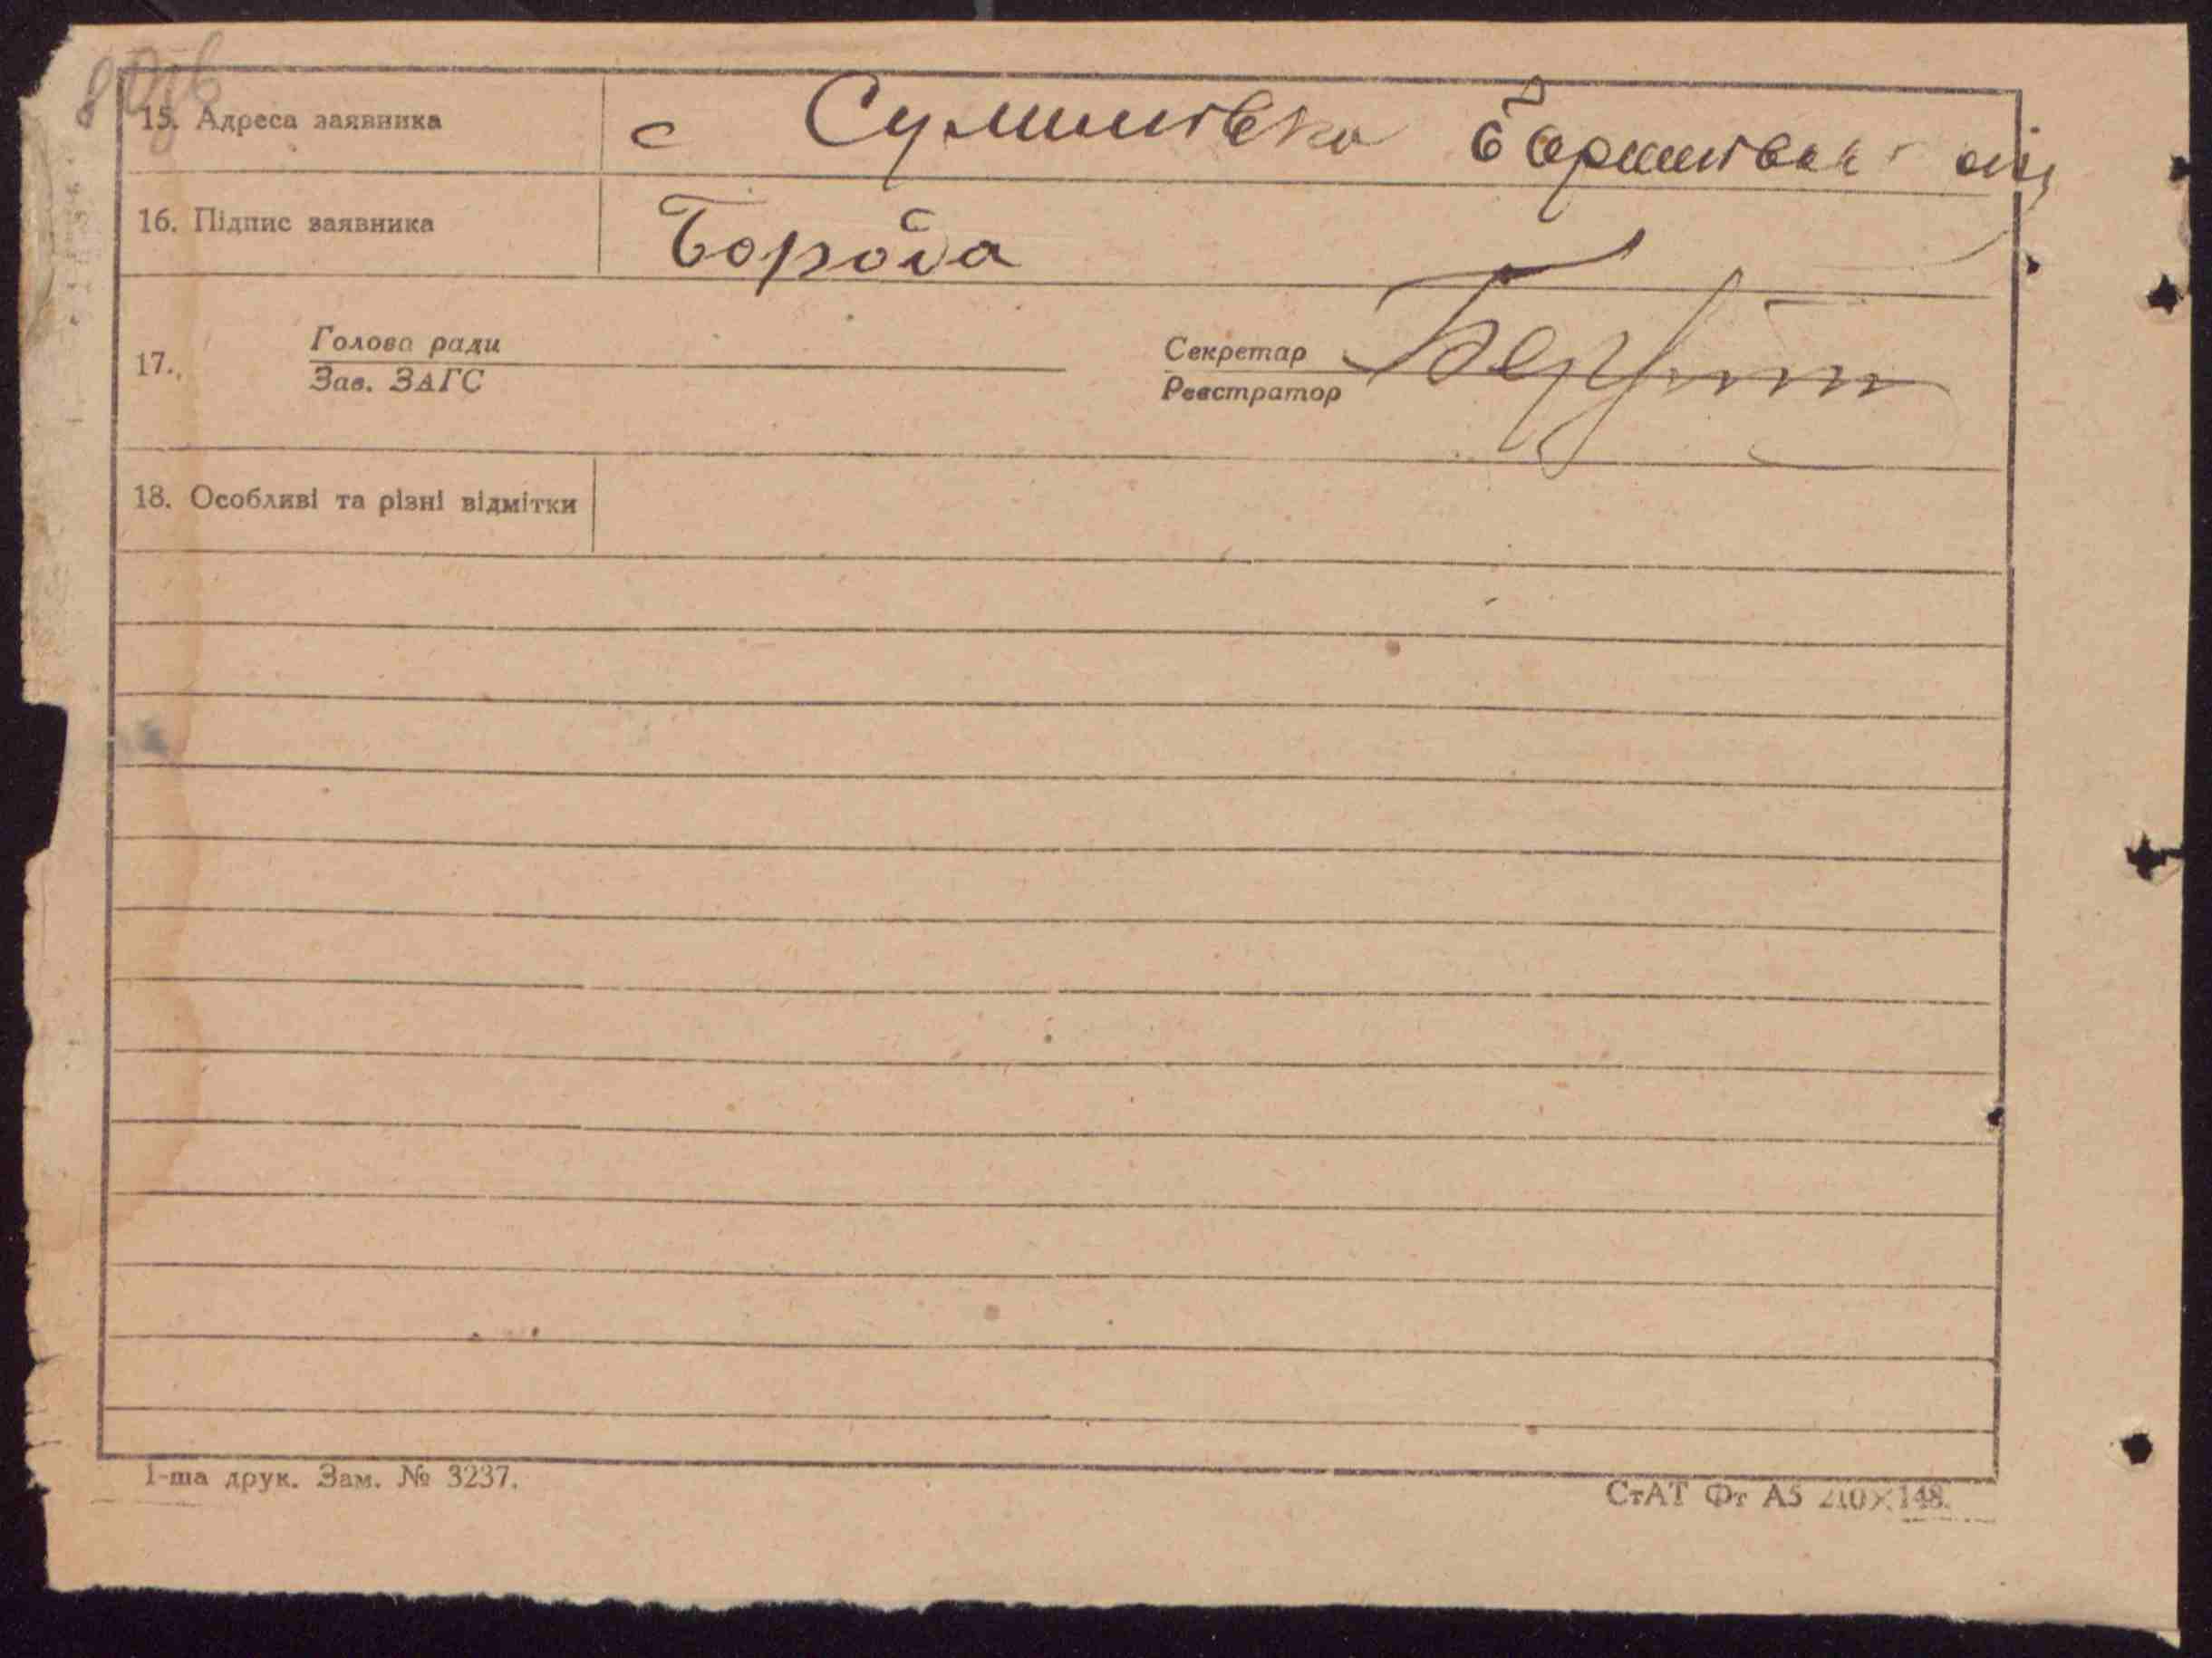 80зв
15. Адреса заявника с Сумішівка
16. Підпис заявника Борода
17. Голова ради Секретар
Зав. ЗАГС Реєстратор
18. Особливі та різні відмітки
1-ша друк. Зам. № 3237. СтАТ Фт А5 210×148.